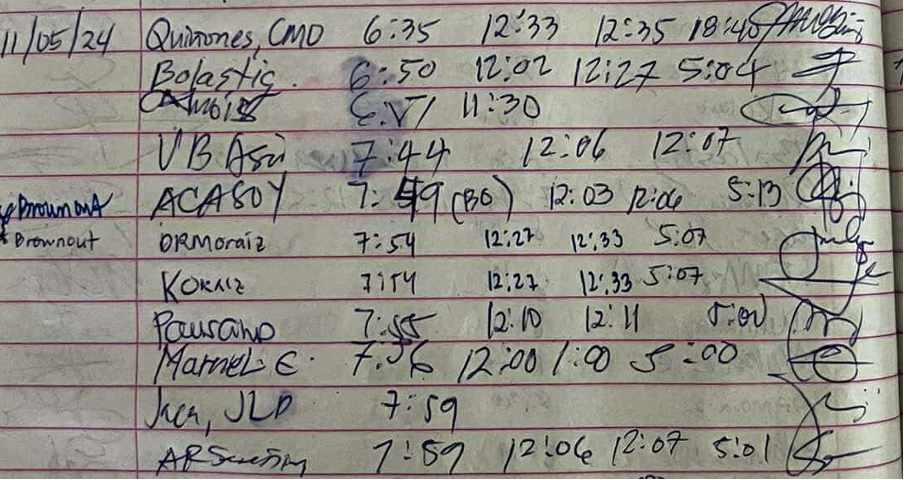 11/05/24 Quinones, CMO 6:35 12:33 12:35 18:40
Bolastig. 6:50 12:02 12:27 5:04
11:30
VB Asu 7:44 12:06 12:07
Brownout ACASOY 7:49 (BO) 12:03 12:06 5:13
* Brownout DRMoraiz 7:54 12:27 12:33 5:07
7:54 12:27 12:33 5:07
7:55 12:10 12:11 5:00
Marnel E. 7:56 12:00 1:00 5:00
JLD 7:59
7:59 12:06 12:07 5:01